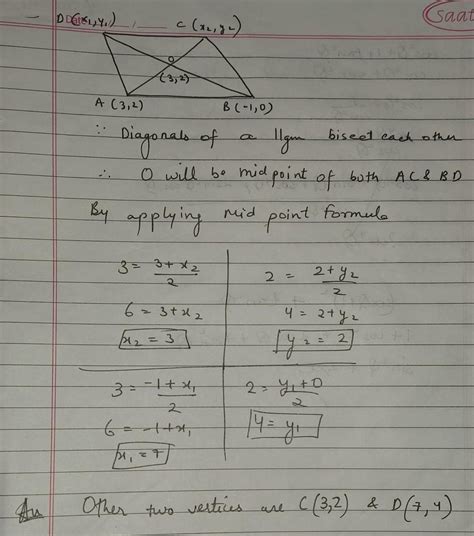 D (x₁, y₁)
C (x₂, y₂)
Saat
O
(3,2)
A (3,2)
B (-1,0)
∵ Diagonals of a ||gm bisect each other
∴ O will be midpoint of both AC & BD
By applying mid point formula
3 = (3 + x₂)/2
2 = (2 + y₂)/2
6 = 3 + x₂
4 = 2 + y₂
x₂ = 3
y₂ = 2
3 = (-1 + x₁)/2
2 = (y₁ + 0)/2
6 = -1 + x₁
4 = y₁
x₁ = 7
Ans Other two vertices are C(3,2) & D(7,4)